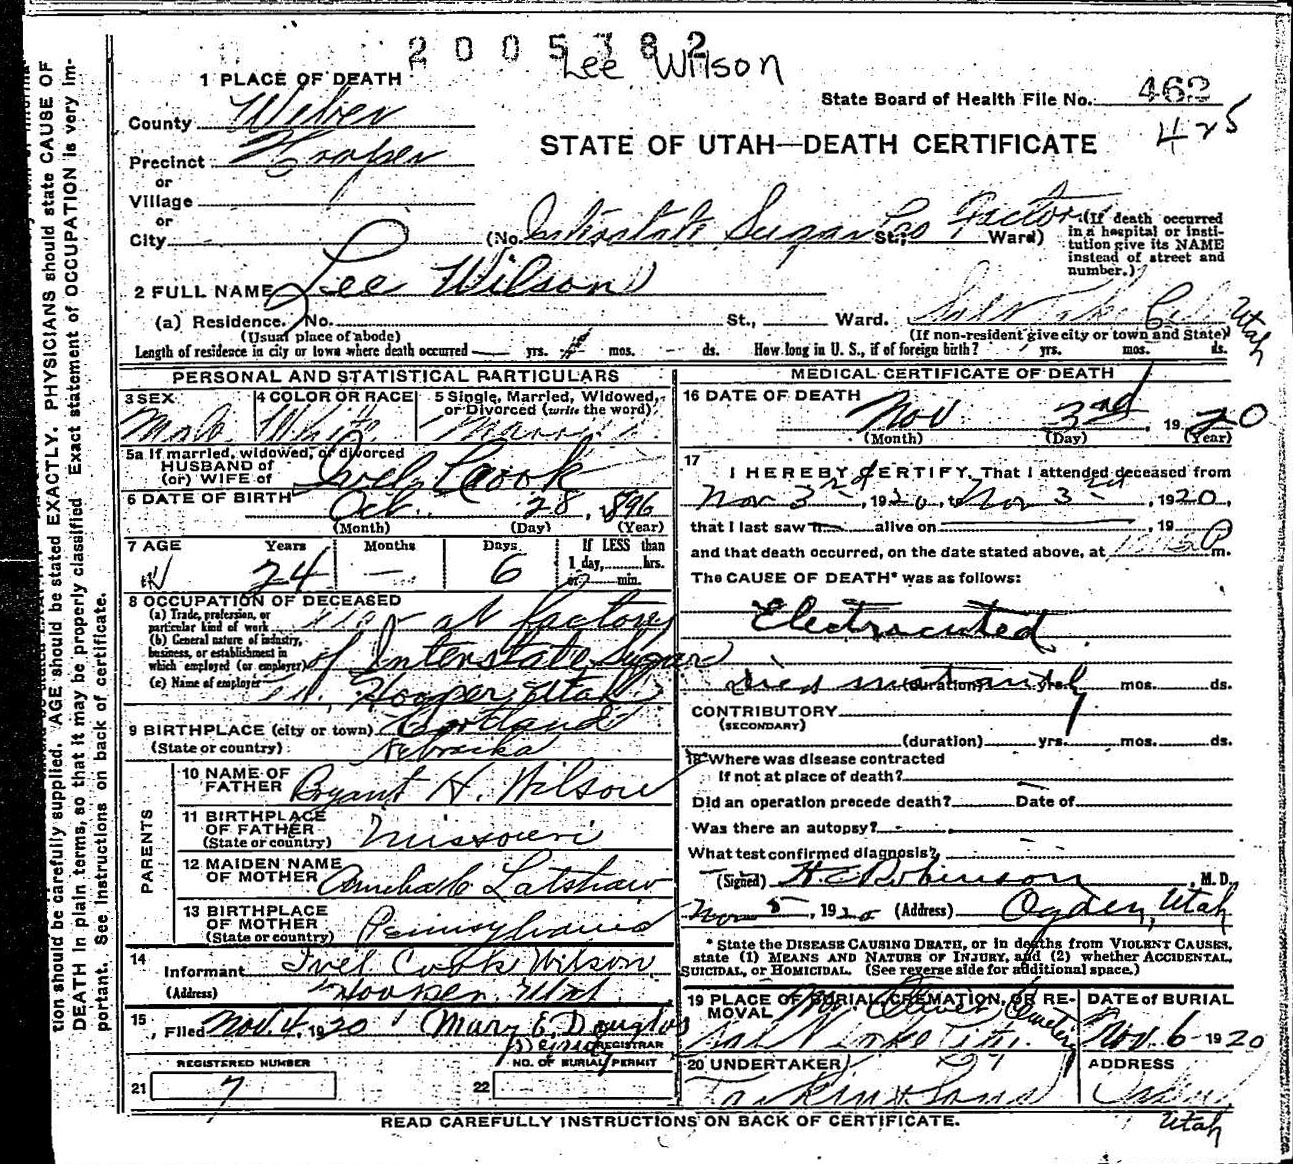 2005382
Lee Wilson
1 PLACE OF DEATH
State Board of Health File No. 462
425
County Weber
STATE OF UTAH—DEATH CERTIFICATE
Precinct Hooper
or
Village
or
City (No. Interstate Sugar Co Factory St.; Ward)
(If death occurred in a hospital or institution give its NAME instead of street and number.)
2 FULL NAME Lee Wilson
(a) Residence. No. St., Ward. Salt Lake City Utah
(Usual place of abode) (If non-resident give city or town and State)
Length of residence in city or town where death occurred yrs. mos. ds. How long in U. S., if of foreign birth? yrs. mos. ds.
PERSONAL AND STATISTICAL PARTICULARS
3 SEX Male
4 COLOR OR RACE White
5 Single, Married, Widowed, or Divorced (write the word) Married
5a If married, widowed, or divorced
HUSBAND of
(or) WIFE of Ivel Cook
6 DATE OF BIRTH Oct. 28, 1896
(Month) (Day) (Year)
7 AGE Years Months Days If LESS than
24 — 6 1 day, hrs.
or min.
8 OCCUPATION OF DECEASED
(a) Trade, profession, or particular kind of work at factory
(b) General nature of industry, business, or establishment in which employed (or employer) of Interstate Sugar
(c) Name of employer Hooper, Utah
9 BIRTHPLACE (city or town) Cortland
(State or country) Nebraska
PARENTS
10 NAME OF FATHER Bryant H. Wilson
11 BIRTHPLACE OF FATHER
(State or country) Missouri
12 MAIDEN NAME OF MOTHER Latshaw
13 BIRTHPLACE OF MOTHER
(State or country) Pennsylvania
14
Informant Ivel Cook Wilson
(Address) Hooper, Utah
15
Filed Nov. 4, 1920 Mary E. Douglas
REGISTRAR
REGISTERED NUMBER
NO. OF BURIAL PERMIT
21 7
22
MEDICAL CERTIFICATE OF DEATH
16 DATE OF DEATH
Nov 3rd, 1920
(Month) (Day) (Year)
17
I HEREBY CERTIFY, That I attended deceased from
Nov 3rd, 1920, to Nov 3rd, 1920,
that I last saw h alive on , 19
and that death occurred, on the date stated above, at P m.
The CAUSE OF DEATH* was as follows:
Electrocuted
Died instantly
(duration) yrs. mos. ds.
CONTRIBUTORY
(SECONDARY)
(duration) yrs. mos. ds.
18 Where was disease contracted
If not at place of death?
Did an operation precede death? Date of
Was there an autopsy?
What test confirmed diagnosis?
(Signed) H. C. Robinson, M. D.
Nov 5, 1920 (Address) Ogden, Utah
* State the DISEASE CAUSING DEATH, or in deaths from VIOLENT CAUSES,
state (1) MEANS AND NATURE OF INJURY, and (2) whether ACCIDENTAL,
SUICIDAL, or HOMICIDAL. (See reverse side for additional space.)
19 PLACE OF BURIAL, CREMATION, OR REMOVAL Mt. Olivet Cemetery
Salt Lake City
DATE of BURIAL
Nov. 6 1920
20 UNDERTAKER
Larkin & Sons
ADDRESS
Ogden, Utah
READ CAREFULLY INSTRUCTIONS ON BACK OF CERTIFICATE.
tion should be carefully supplied. AGE should be stated EXACTLY. PHYSICIANS should state CAUSE OF
DEATH in plain terms, so that it may be properly classified. Exact statement of OCCUPATION is very im-
portant. See instructions on back of certificate.